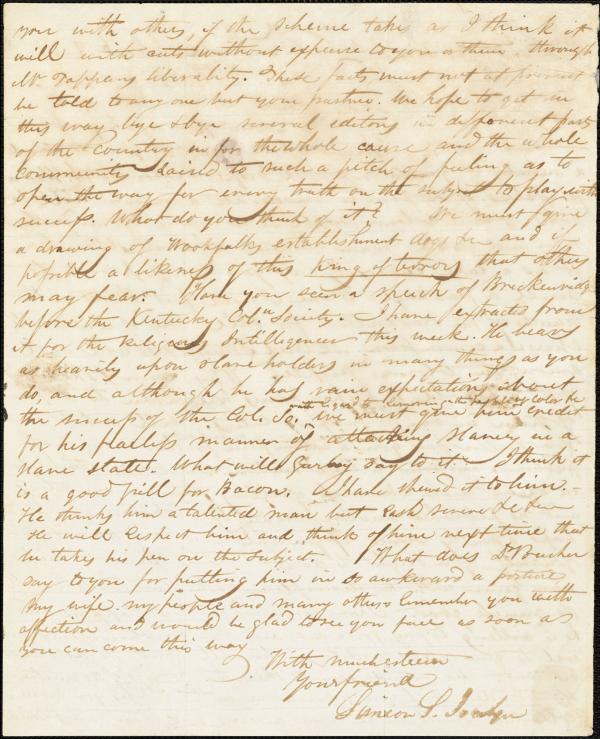 you with others, if the scheme take as I think it
will with cuts without expense to you or them through
Mr Tappans liberality. These facts must not at present
be told to any one but your partner. We hope to get in
this way bye & bye several editors in different parts
of the country in for the whole cause and the whole
community raised to such a pitch of feeling as to
open the way for every truth on the subject to play with
success. What do you think of it? We must give
a drawing of Woolfolks establishment dogs &c and if
possible a likeness of this King of terrors that others
may fear. Have you seen a speech of Breckenridge
before the Kentucky Coln Society. I have extracted from
it for the Religious Intelligencer this week. He bears
as heavily upon slave holders in many things as you
do, and although he has vain expectations about
the success of the Col. So. with regard to removing the people of color &c
we must give him credit
for his fearless manner of attacking slavery in a
slave state. What will Gurley say to it. I think it
is a good pill for Bacon. I have shewed it to him.
He thinks him a talented man but rash severe &c &c
He will respect him and think of him next time that
he takes his pen on the subject. What does Dr
say to you for putting him in so awkward a posture
My wife my people and many others remember you with
affection and would be glad to see your face as soon as
you can come this way
With much esteem
Your friend
Simeon S. Jocelyn